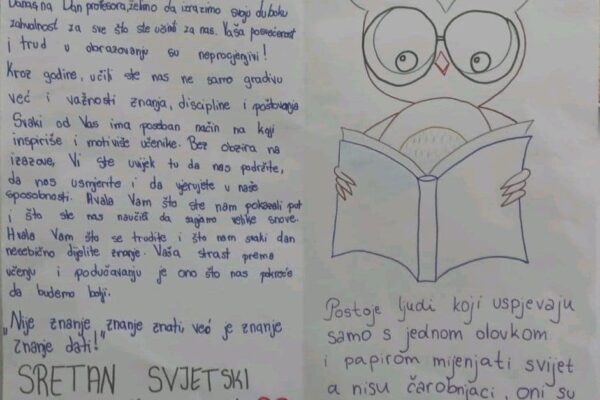 Danas, na Dan profesora, želimo da izrazimo svoju duboku
zahvalnost za sve što ste učinili za nas. Vaša posvećenost
i trud u obrazovanju su neprocjenjivi!
Kroz godine, učili ste nas ne samo gradivu
već i važnosti znanja, discipline i poštovanja
Svaki od Vas ima poseban način na koji
inspiriše i motiviše učenike. Bez obzira na
izazove, Vi ste uvijek tu da nas podržite,
da nas usmjerite i da vjerujete u naše
sposobnosti. Hvala Vam što ste nam pokazali put
i što ste nas naučili da sanjamo velike snove.
Hvala Vam što se trudite i što nam svaki dan
nesebično dijelite znanje. Vaša strast prema
učenju i podučavanju je ono što nas pokreće
da budemo bolji.
„Nije znanje, znanje znati već je znanje
znanje dati!"
SRETAN SVJETSKI
Postoje ljudi koji uspjevaju
samo s jednom olovkom
i papirom mijenjati svijet
a nisu čarobnjaci, oni su